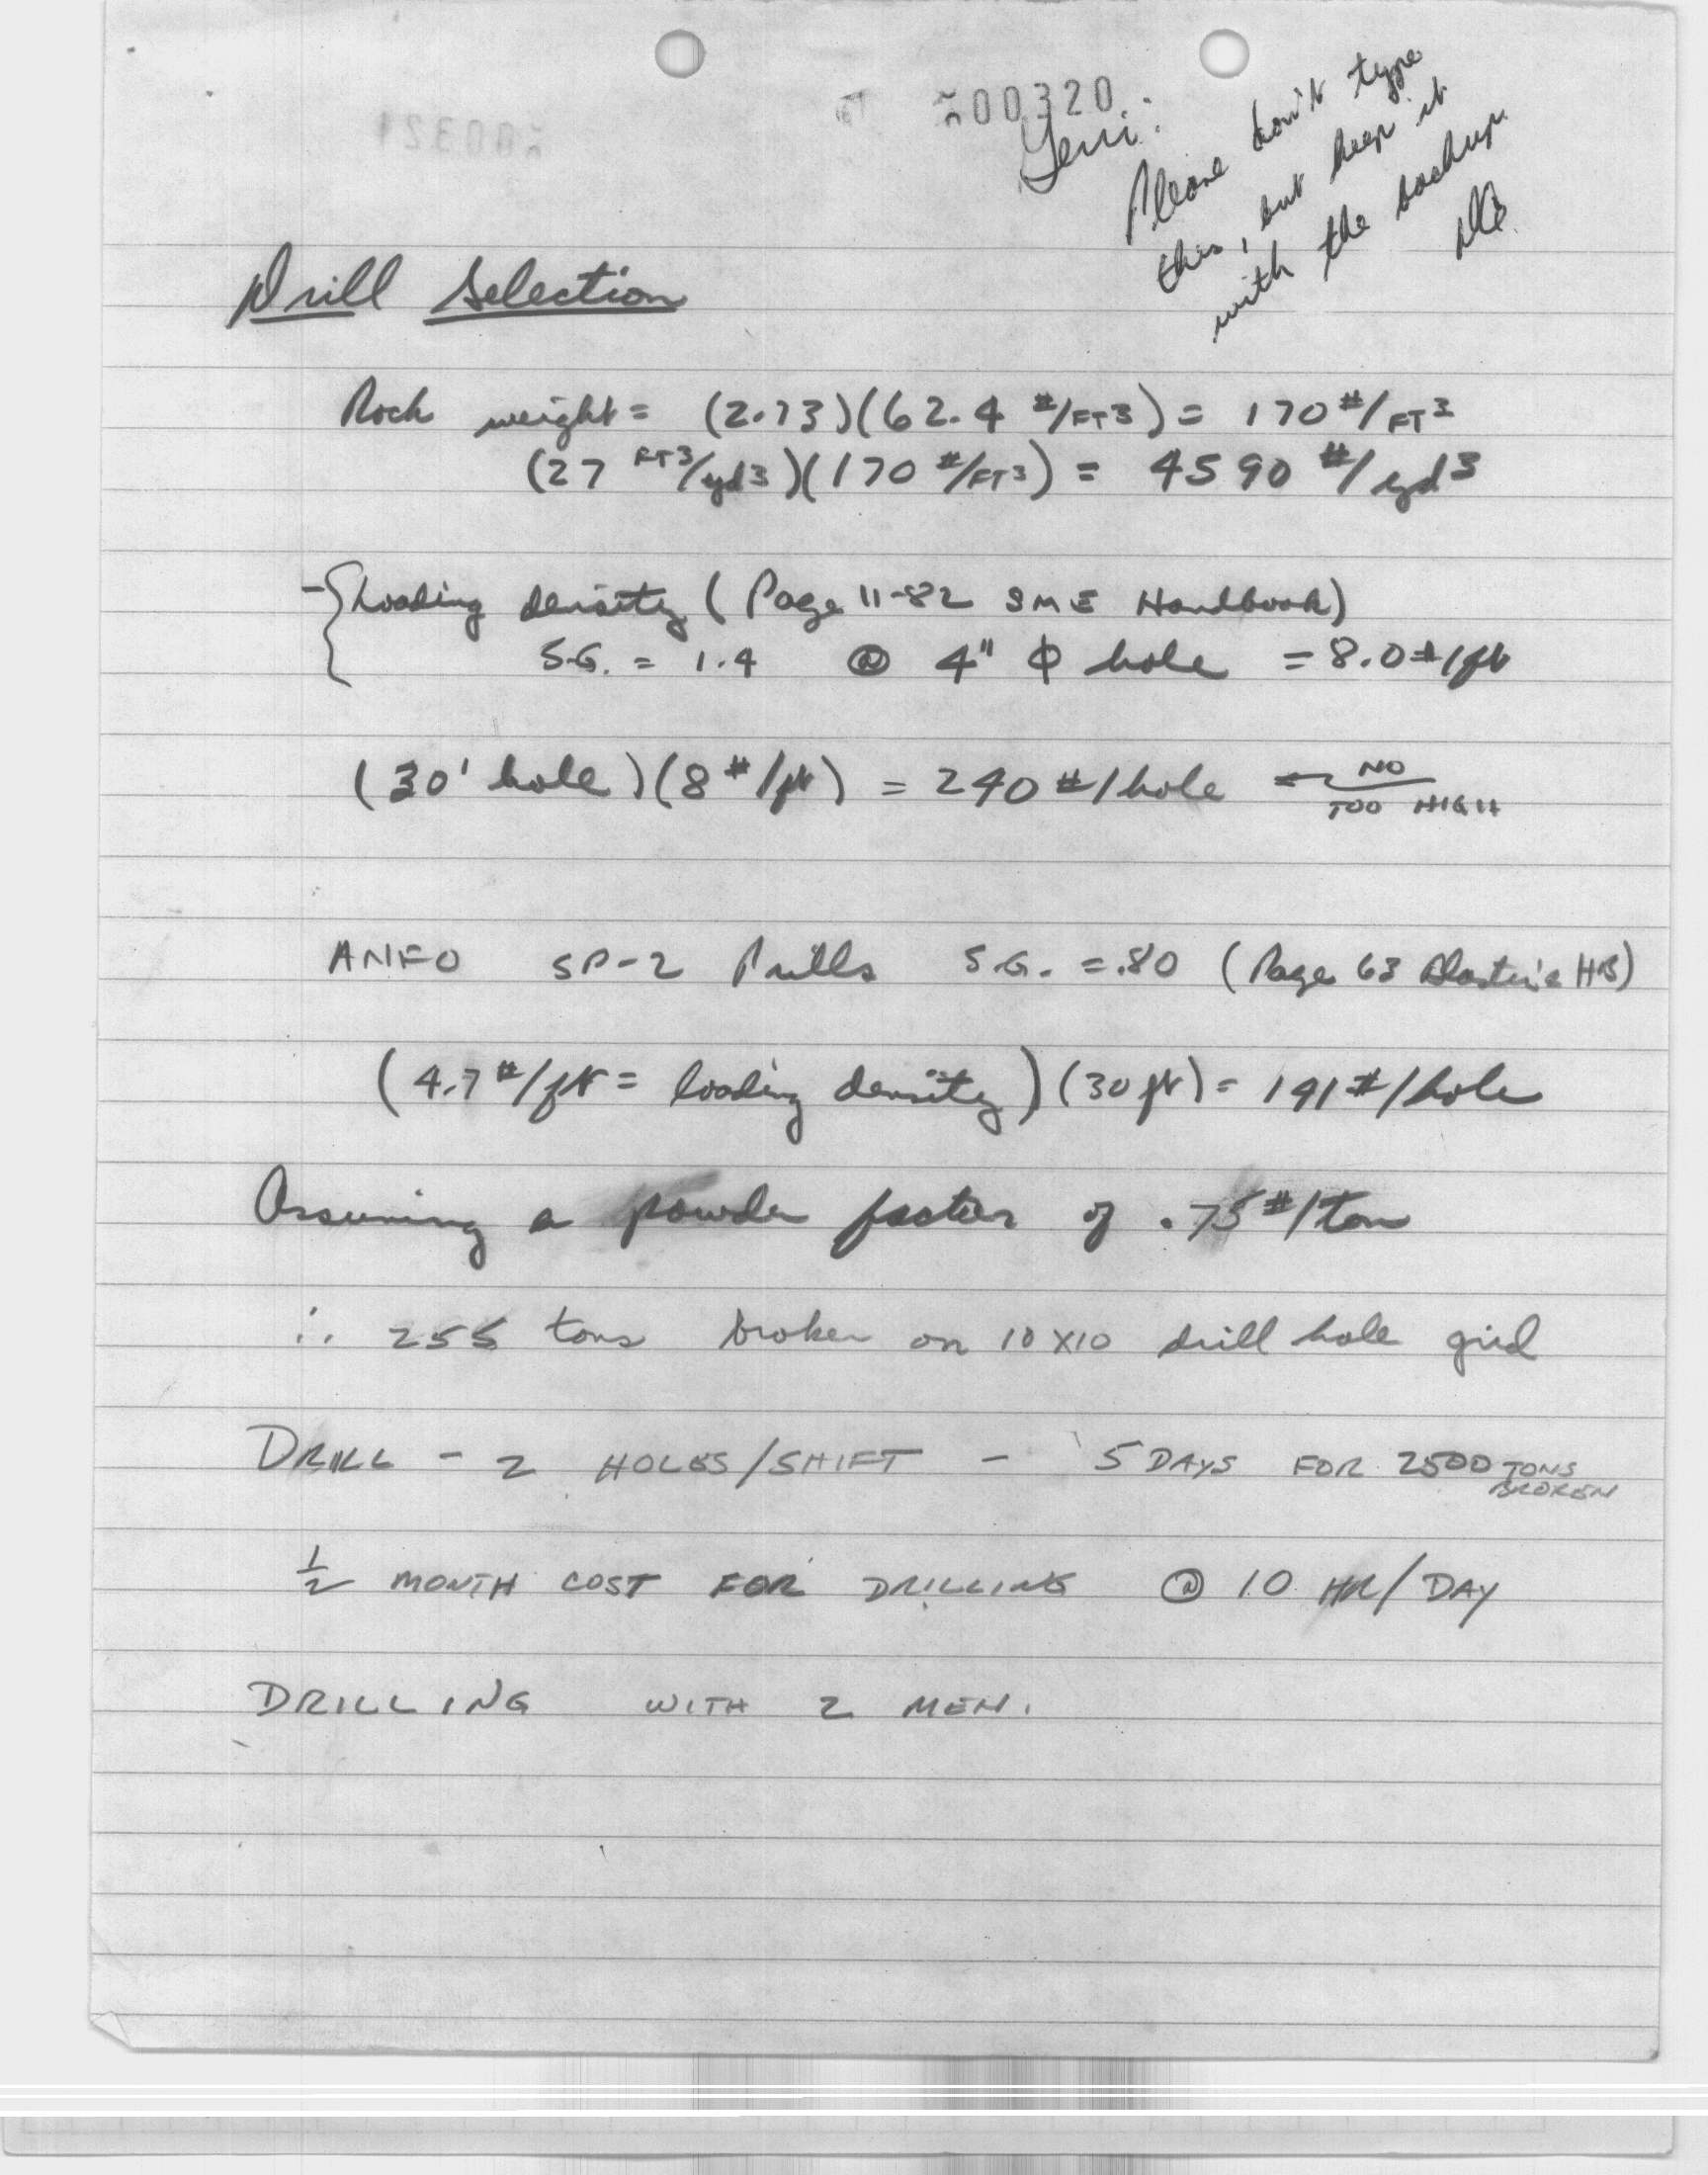 00320
Geni:
Please don't type
this, but keep it
with the backup.
Drill Selection
Rock weight = (2.73)(62.4 #/FT3) = 170 #/FT3
(27 FT3/yd3)(170 #/FT3) = 4590 #/yd3
Loading density (Page 11-82 SME Handbook)
S.G. = 1.4 @ 4" φ hole = 8.0 #/ft
(30' hole)(8 #/ft) = 240 #/hole ← NO
TOO HIGH
ANFO SP-2 Prills S.G. = .80 (Page 63 Blaster's HB)
(4.7 #/ft = loading density)(30 ft) = 141 #/hole
Assuming a powder factor of .75 #/ton
∴ 255 tons broken on 10 X10 drill hole grid
DRILL - 2 HOLES/SHIFT - 5 DAYS FOR 2500 TONS
BROKEN
1/2 MONTH COST FOR DRILLING @ 10 HR/DAY
DRILLING WITH 2 MEN.